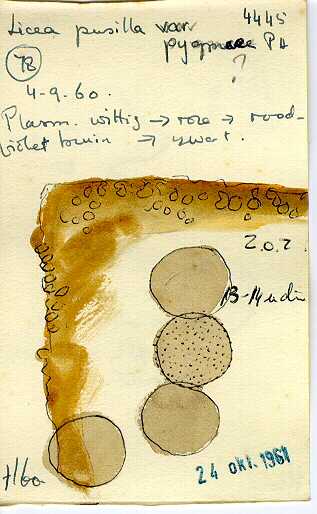 4445
Licea pusilla var
pygmaea PA
?
78
4-9.60.
Plasm. wittig → rose → rood-
violet bruin → zwart.
Z.O.Z.
13-14 µ diam
24 okt. 1961